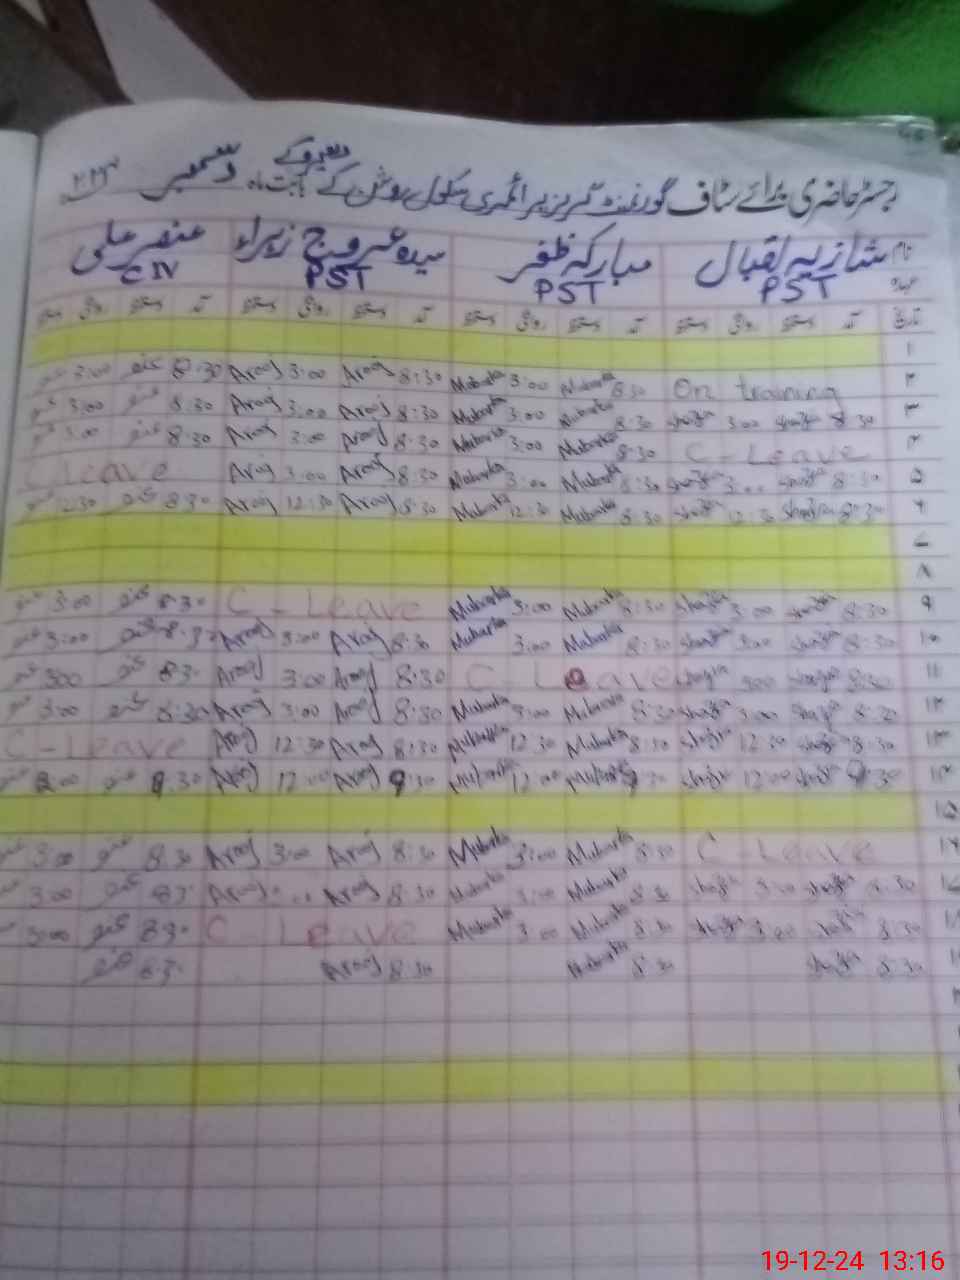 دھیروکے
رجسٹر حاضری برائے سٹاف گورنمنٹ گرلز پرائمری سکول روشن کے بابت ماہ دسمبر
نام شازیہ اقبال مبارکہ ظفر سیدہ عروج زہراء عنصر علی
عہدہ PST PST PST C IV
تاریخ آمد دستخط روانگی دستخط آمد دستخط روانگی دستخط آمد دستخط روانگی دستخط آمد دستخط روانگی دستخط
۱
۲ On training 8:30 Mubarka 3:00 Mubarka 8:30 Arooj 3:00 Arooj 8:30 عنصر 3:00
۳ 8:30 Shazia 3:00 Shazia 8:30 Mubarka 3:00 Mubarka 8:30 Arooj 3:00 Arooj 8:30 عنصر 3:00
۴ C - Leave 8:30 Mubarka 3:00 Mubarka 8:30 Arooj 3:00 Arooj 8:30 عنصر 3:00
۵ 8:30 Shazia 3:00 Shazia 8:30 Mubarka 3:00 Mubarka 8:30 Arooj 3:00 Arooj C Leave
۶ 8:30 Shazia 12:30 Shazia 8:30 Mubarka 12:30 Mubarka 8:30 Arooj 12:30 Arooj 8:30 عنصر 12:30
۷
۸
۹ 8:30 Shazia 3:00 Shazia 8:30 Mubarka 3:00 Mubarka C - Leave 8:30 عنصر 3:00
۱۰ 8:30 Shazia 3:00 Shazia 8:30 Mubarka 3:00 Mubarka 8:30 Arooj 3:00 Arooj 8:30 عنصر 3:00
۱۱ 8:30 Shazia 300 Shazia C Leave 8:30 Arooj 3:00 Arooj 830 عنصر 300
۱۲ 8:30 Shazia 3:00 Shazia 8:30 Mubarka 3:00 Mubarka 8:30 Arooj 3:00 Arooj 8:30 عنصر 3:00
۱۳ 8:30 Shazia 12:30 Shazia 8:30 Mubarka 12:30 Mubarka 8:30 Arooj 12:30 Arooj C - Leave
۱۴ 9:30 Shazia 12:00 Shazia 9:30 Mubarka 12:00 Mubarka 9:30 Arooj 12:00 Arooj 9:30 عنصر 2:00
۱۵
۱۶ C - Leave 8:30 Mubarka 3:00 Mubarka 8:30 Arooj 3:00 Arooj 8:30 عنصر 3:00
۱۷ 8:30 Shazia 3:00 Shazia 8:30 Mubarka 3:00 Mubarka 8:30 Arooj Arooj 830 عنصر 3:00
۱۸ 8:30 Shazia 3:00 Shazia 8:30 Mubarka 3:00 Mubarka C - Leave 830 عنصر 3:00
8:30 Shazia 8:30 Mubarka 8:30 Arooj 8:30 عنصر
19-12-24 13:16